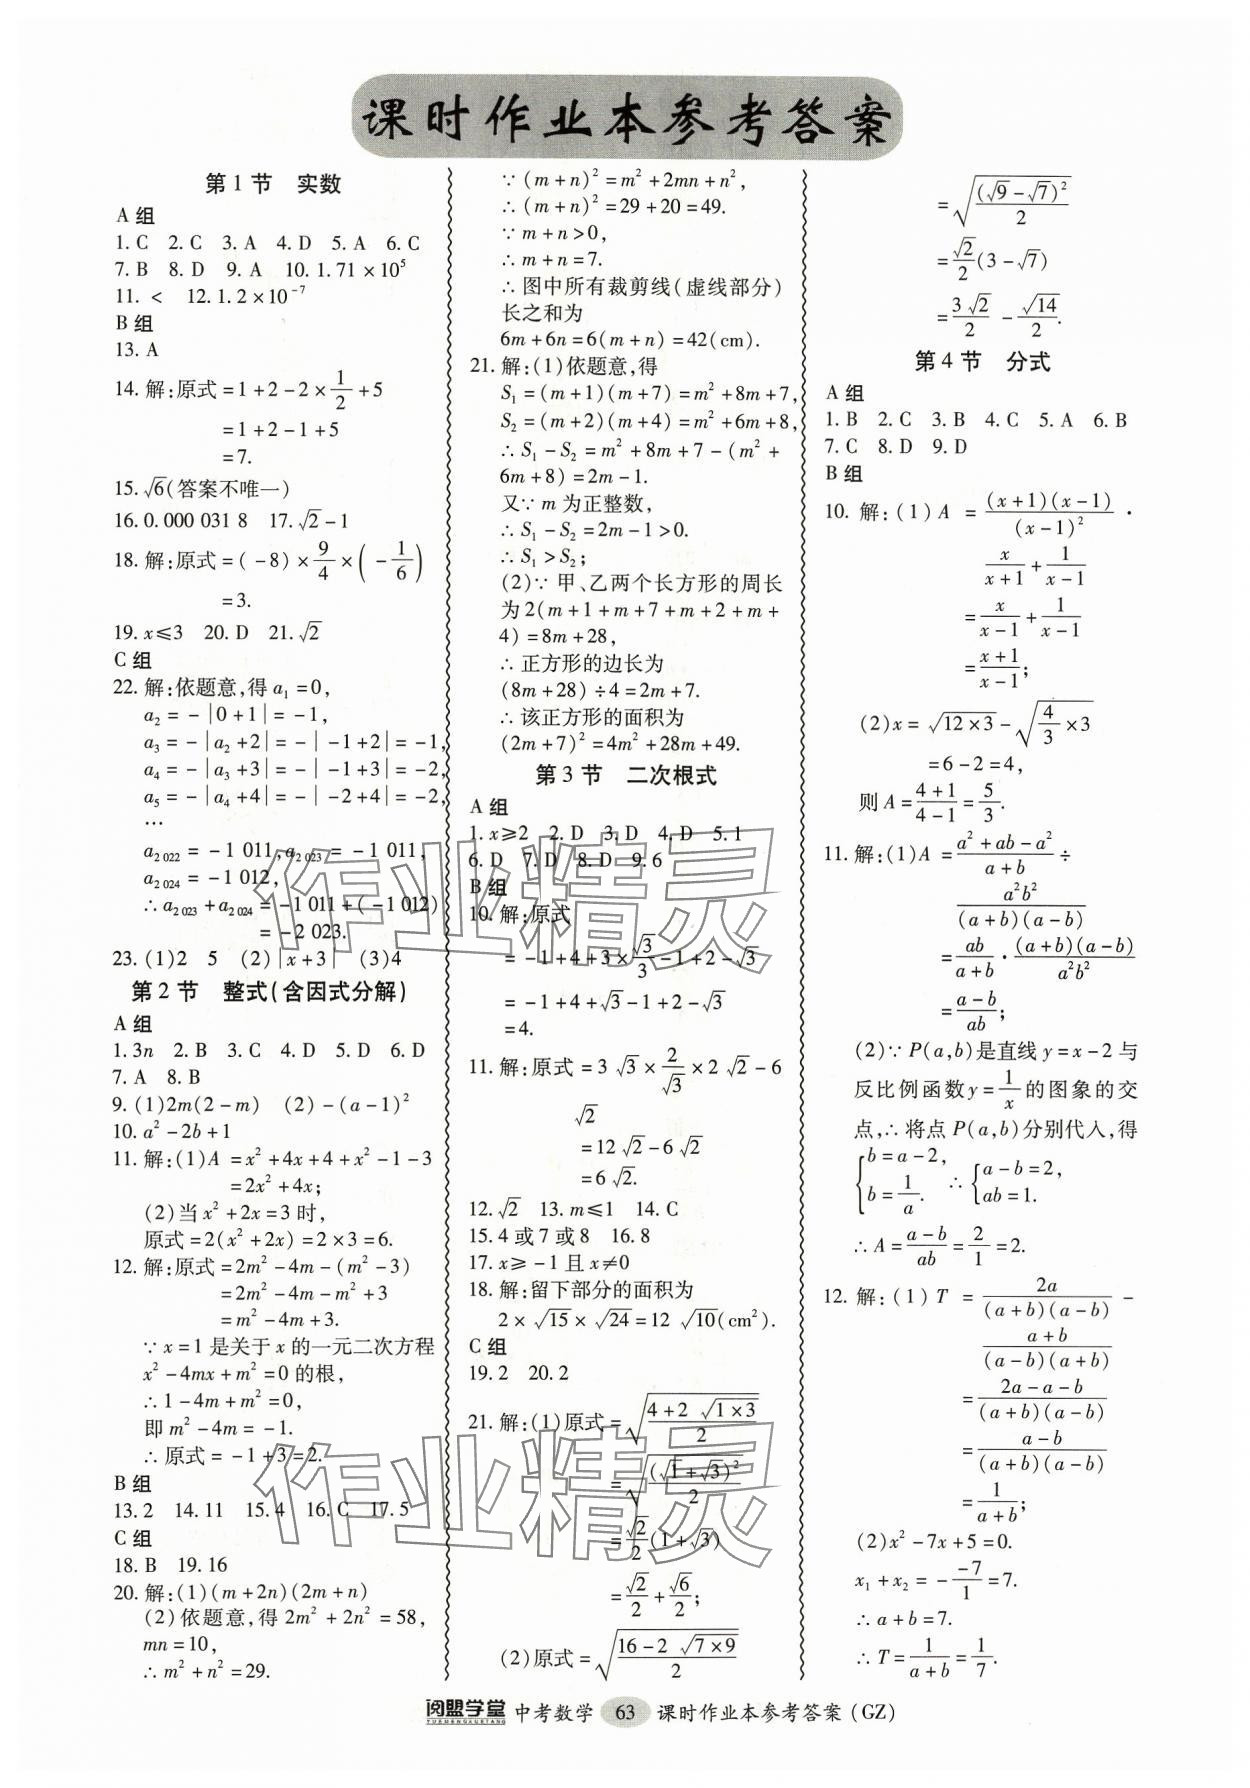 课时作业本参考答案
第1节 实数
A组
1. C 2. C 3. A 4. D 5. A 6. C
7. B 8. D 9. A 10. 1.71×10⁵
11. < 12. 1.2×10⁻⁷
B组
13. A
14. 解:原式=1+2-2×1/2+5
=1+2-1+5
=7.
15. √6(答案不唯一)
16. 0.000 031 8 17. √2-1
18. 解:原式=(-8)×9/4×(-1/6)
=3.
19. x≤3 20. D 21. √2
C组
22. 解:依题意,得a₁=0,
a₂=-|0+1|=-1,
a₃=-|a₂+2|=-|-1+2|=-1,
a₄=-|a₃+3|=-|-1+3|=-2,
a₅=-|a₄+4|=-|-2+4|=-2,
…
a₂₀₂₂=-1 011,a₂₀₂₃=-1 011,
a₂₀₂₄=-1 012,
∴a₂₀₂₃+a₂₀₂₄=-1 011+(-1 012)
=-2 023.
23. (1)2 5 (2)|x+3| (3)4
第2节 整式(含因式分解)
A组
1. 3n 2. B 3. C 4. D 5. D 6. D
7. A 8. B
9. (1)2m(2-m) (2)-(a-1)²
10. a²-2b+1
11. 解:(1)A=x²+4x+4+x²-1-3
=2x²+4x;
(2)当x²+2x=3时,
原式=2(x²+2x)=2×3=6.
12. 解:原式=2m²-4m-(m²-3)
=2m²-4m-m²+3
=m²-4m+3.
∵x=1是关于x的一元二次方程
x²-4mx+m²=0的根,
∴1-4m+m²=0,
即m²-4m=-1.
∴原式=-1+3=2.
B组
13. 2 14. 11 15. 4 16. C 17. 5
C组
18. B 19. 16
20. 解:(1)(m+2n)(2m+n)
(2)依题意,得2m²+2n²=58,
mn=10,
∴m²+n²=29.
∵(m+n)²=m²+2mn+n²,
∴(m+n)²=29+20=49.
∵m+n>0,
∴m+n=7.
∴图中所有裁剪线(虚线部分)
长之和为
6m+6n=6(m+n)=42(cm).
21. 解:(1)依题意,得
S₁=(m+1)(m+7)=m²+8m+7,
S₂=(m+2)(m+4)=m²+6m+8,
∴S₁-S₂=m²+8m+7-(m²+
6m+8)=2m-1.
又∵m为正整数,
∴S₁-S₂=2m-1>0.
∴S₁>S₂;
(2)∵甲、乙两个长方形的周长
为2(m+1+m+7+m+2+m+
4)=8m+28,
∴正方形的边长为
(8m+28)÷4=2m+7.
∴该正方形的面积为
(2m+7)²=4m²+28m+49.
第3节 二次根式
A组
1. x≥2 2. D 3. D 4. D 5. 1
6. D 7. D 8. D 9. 6
B组
10. 解:原式
=-1+4+3×√3/3-1+2-√3
=-1+4+√3-1+2-√3
=4.
11. 解:原式=3√3×2/√3×2√2-6
√2
=12√2-6√2
=6√2.
12. √2 13. m≤1 14. C
15. 4或7或8 16. 8
17. x≥-1且x≠0
18. 解:留下部分的面积为
2×√15×√24=12√10(cm²).
C组
19. 2 20. 2
21. 解:(1)原式=√((4+2√(1×3))/2)
=√((√1+√3)²/2)
=√2/2(1+√3)
=√2/2+√6/2;
(2)原式=√((16-2√(7×9))/2)
=√((√9-√7)²/2)
=√2/2(3-√7)
=3√2/2-√14/2.
第4节 分式
A组
1. B 2. C 3. B 4. C 5. A 6. B
7. C 8. D 9. D
B组
10. 解:(1)A=(x+1)(x-1)/(x-1)²·
x/(x+1)+1/(x-1)
=x/(x-1)+1/(x-1)
=(x+1)/(x-1);
(2)x=√(12×3)-√(4/3×3)
=6-2=4,
则A=(4+1)/(4-1)=5/3.
11. 解:(1)A=(a²+ab-a²)/(a+b)÷
a²b²/((a+b)(a-b))
=ab/(a+b)·(a+b)(a-b)/a²b²
=(a-b)/ab;
(2)∵P(a,b)是直线y=x-2与
反比例函数y=1/x的图象的交
点,∴将点P(a,b)分别代入,得
{b=a-2, b=1/a. ∴{a-b=2, ab=1.
∴A=(a-b)/ab=2/1=2.
12. 解:(1)T=2a/((a+b)(a-b))-
(a+b)/((a-b)(a+b))
=(2a-a-b)/((a+b)(a-b))
=(a-b)/((a+b)(a-b))
=1/(a+b);
(2)x²-7x+5=0.
x₁+x₂=-(-7)/1=7.
∴a+b=7.
∴T=1/(a+b)=1/7.
作业精灵
作业精灵
阅盟学堂 YUEMENGXUETANG 中考数学 63 课时作业本参考答案(GZ)